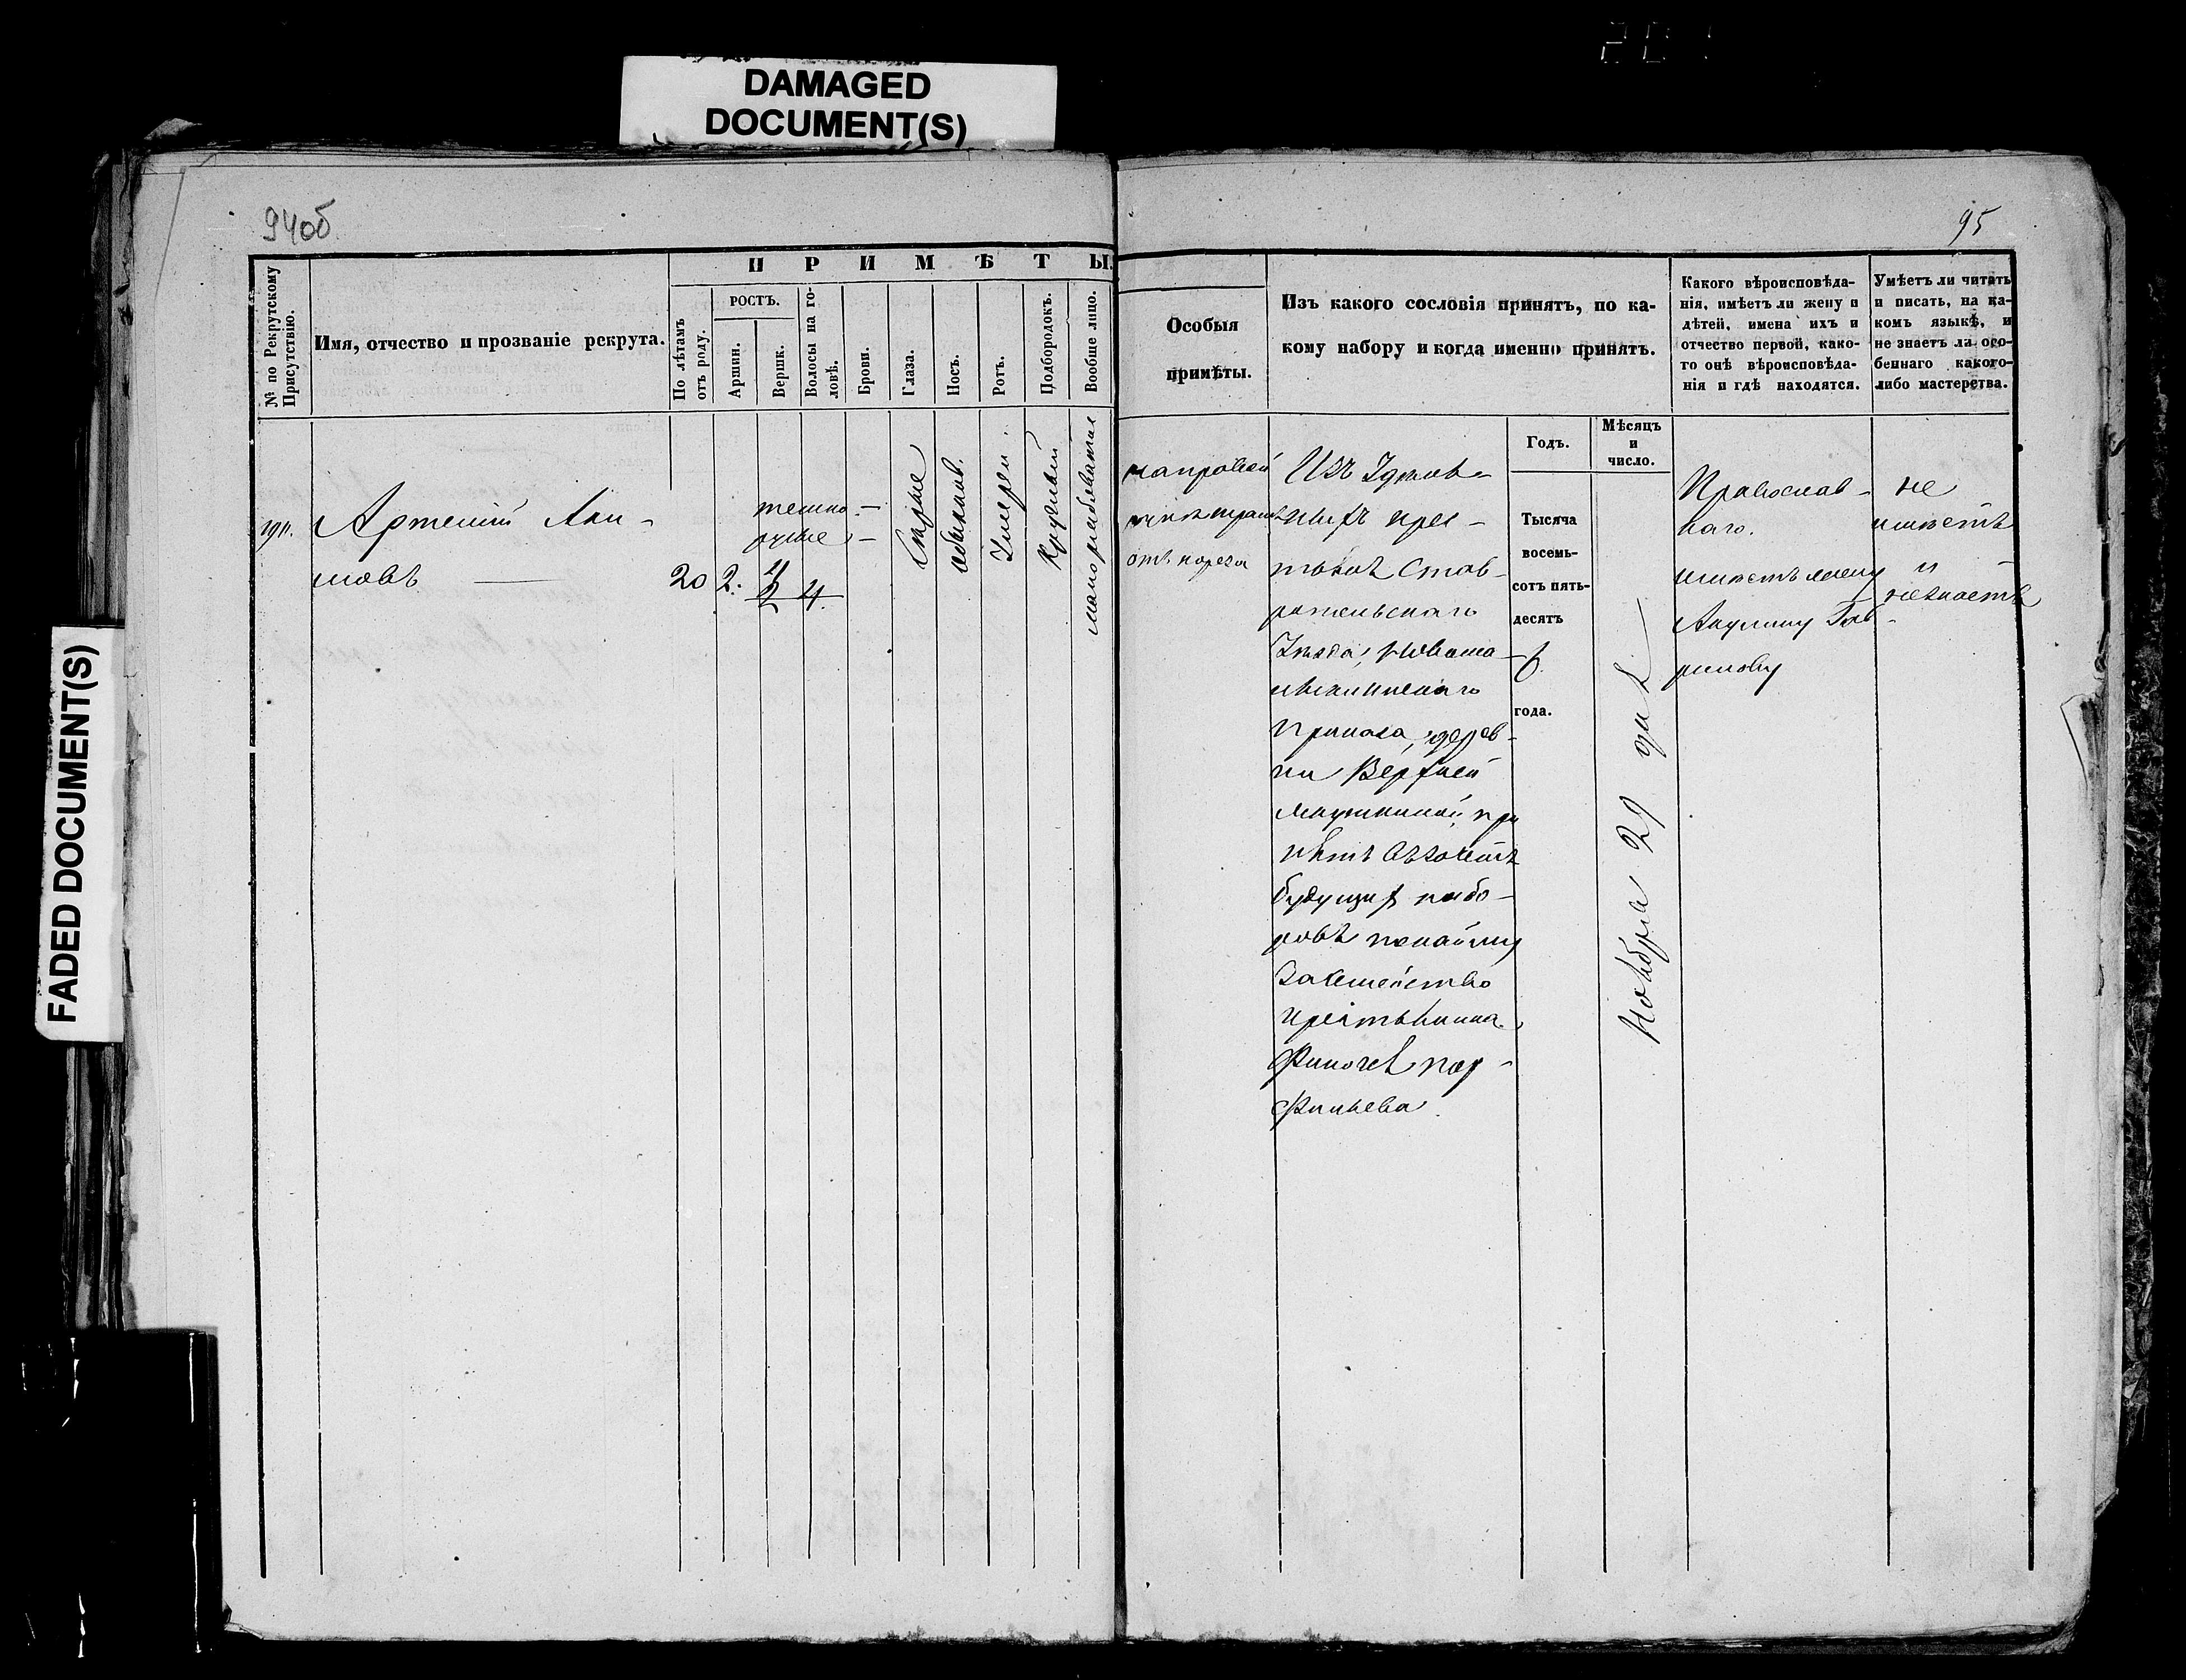 DAMAGED
DOCUMENT(S)
FADED DOCUMENT(S)
94об
95
№ по Рекрутскому
Присутствію.
Имя, отчество и прозваніе рекрута.
ПРИМѢТЫ.
По лѣтамъ
отъ роду.
РОСТЪ.
Аршин.
Вершк.
Волосы на го-
ловѣ.
Брови.
Глаза.
Носъ.
Ротъ.
Подбородокъ.
Вообще лицо.
Особыя
примѣты.
Изъ какого сословія принятъ, по ка-
кому набору и когда именно принятъ.
Годъ.
Мѣсяцъ
и
число.
Какого вѣроисповѣда-
нія, имѣетъ ли жену и
дѣтей, имена ихъ и
отчество первой, како-
то онѣ вѣроисповѣда-
нія и гдѣ находятся.
Умѣетъ ли читать
и писать, на ка-
комъ языкѣ, и
не знаетъ ли осо-
беннаго какого-
либо мастерства.
Артемій Аки-
мовъ
20
2.
4
темно-
русые
Сѣрые
обыкнов.
Умерен.
Круглый
на правой
отъ пореза
Изъ Удѣль-
ныхъ крес-
тьянъ Став-
ропольскаго
Уѣзда,
Приказа, дерев-
ни Верхней
при
нятъ въ зачетъ
будущихъ набо-
ровъ по найму
за семейство
крестьянина
Пор-
фирьева
Тысяча
восемь-
сотъ пять-
десятъ
года.
Ноября 29 дня
Православ-
наго.
имѣетъ жену
Акулину Гав-
рилову
не
умѣетъ
и
незнаетъ